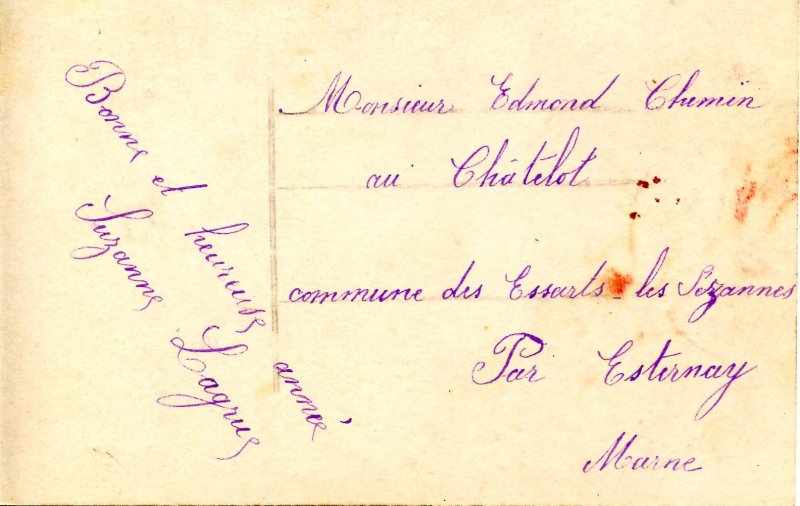 Bonne et heureuse année
Suzanne Lagrue
Monsieur Edmond Chemin
au Châtelot
commune des Essarts-les Sézannes
Par Esternay
Marne